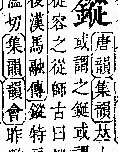 鏦
唐韻集韻𠀤
或謂之鋋或謂
從容之從師古曰
後漢馬融傳鏦特
切集韻韻會昨